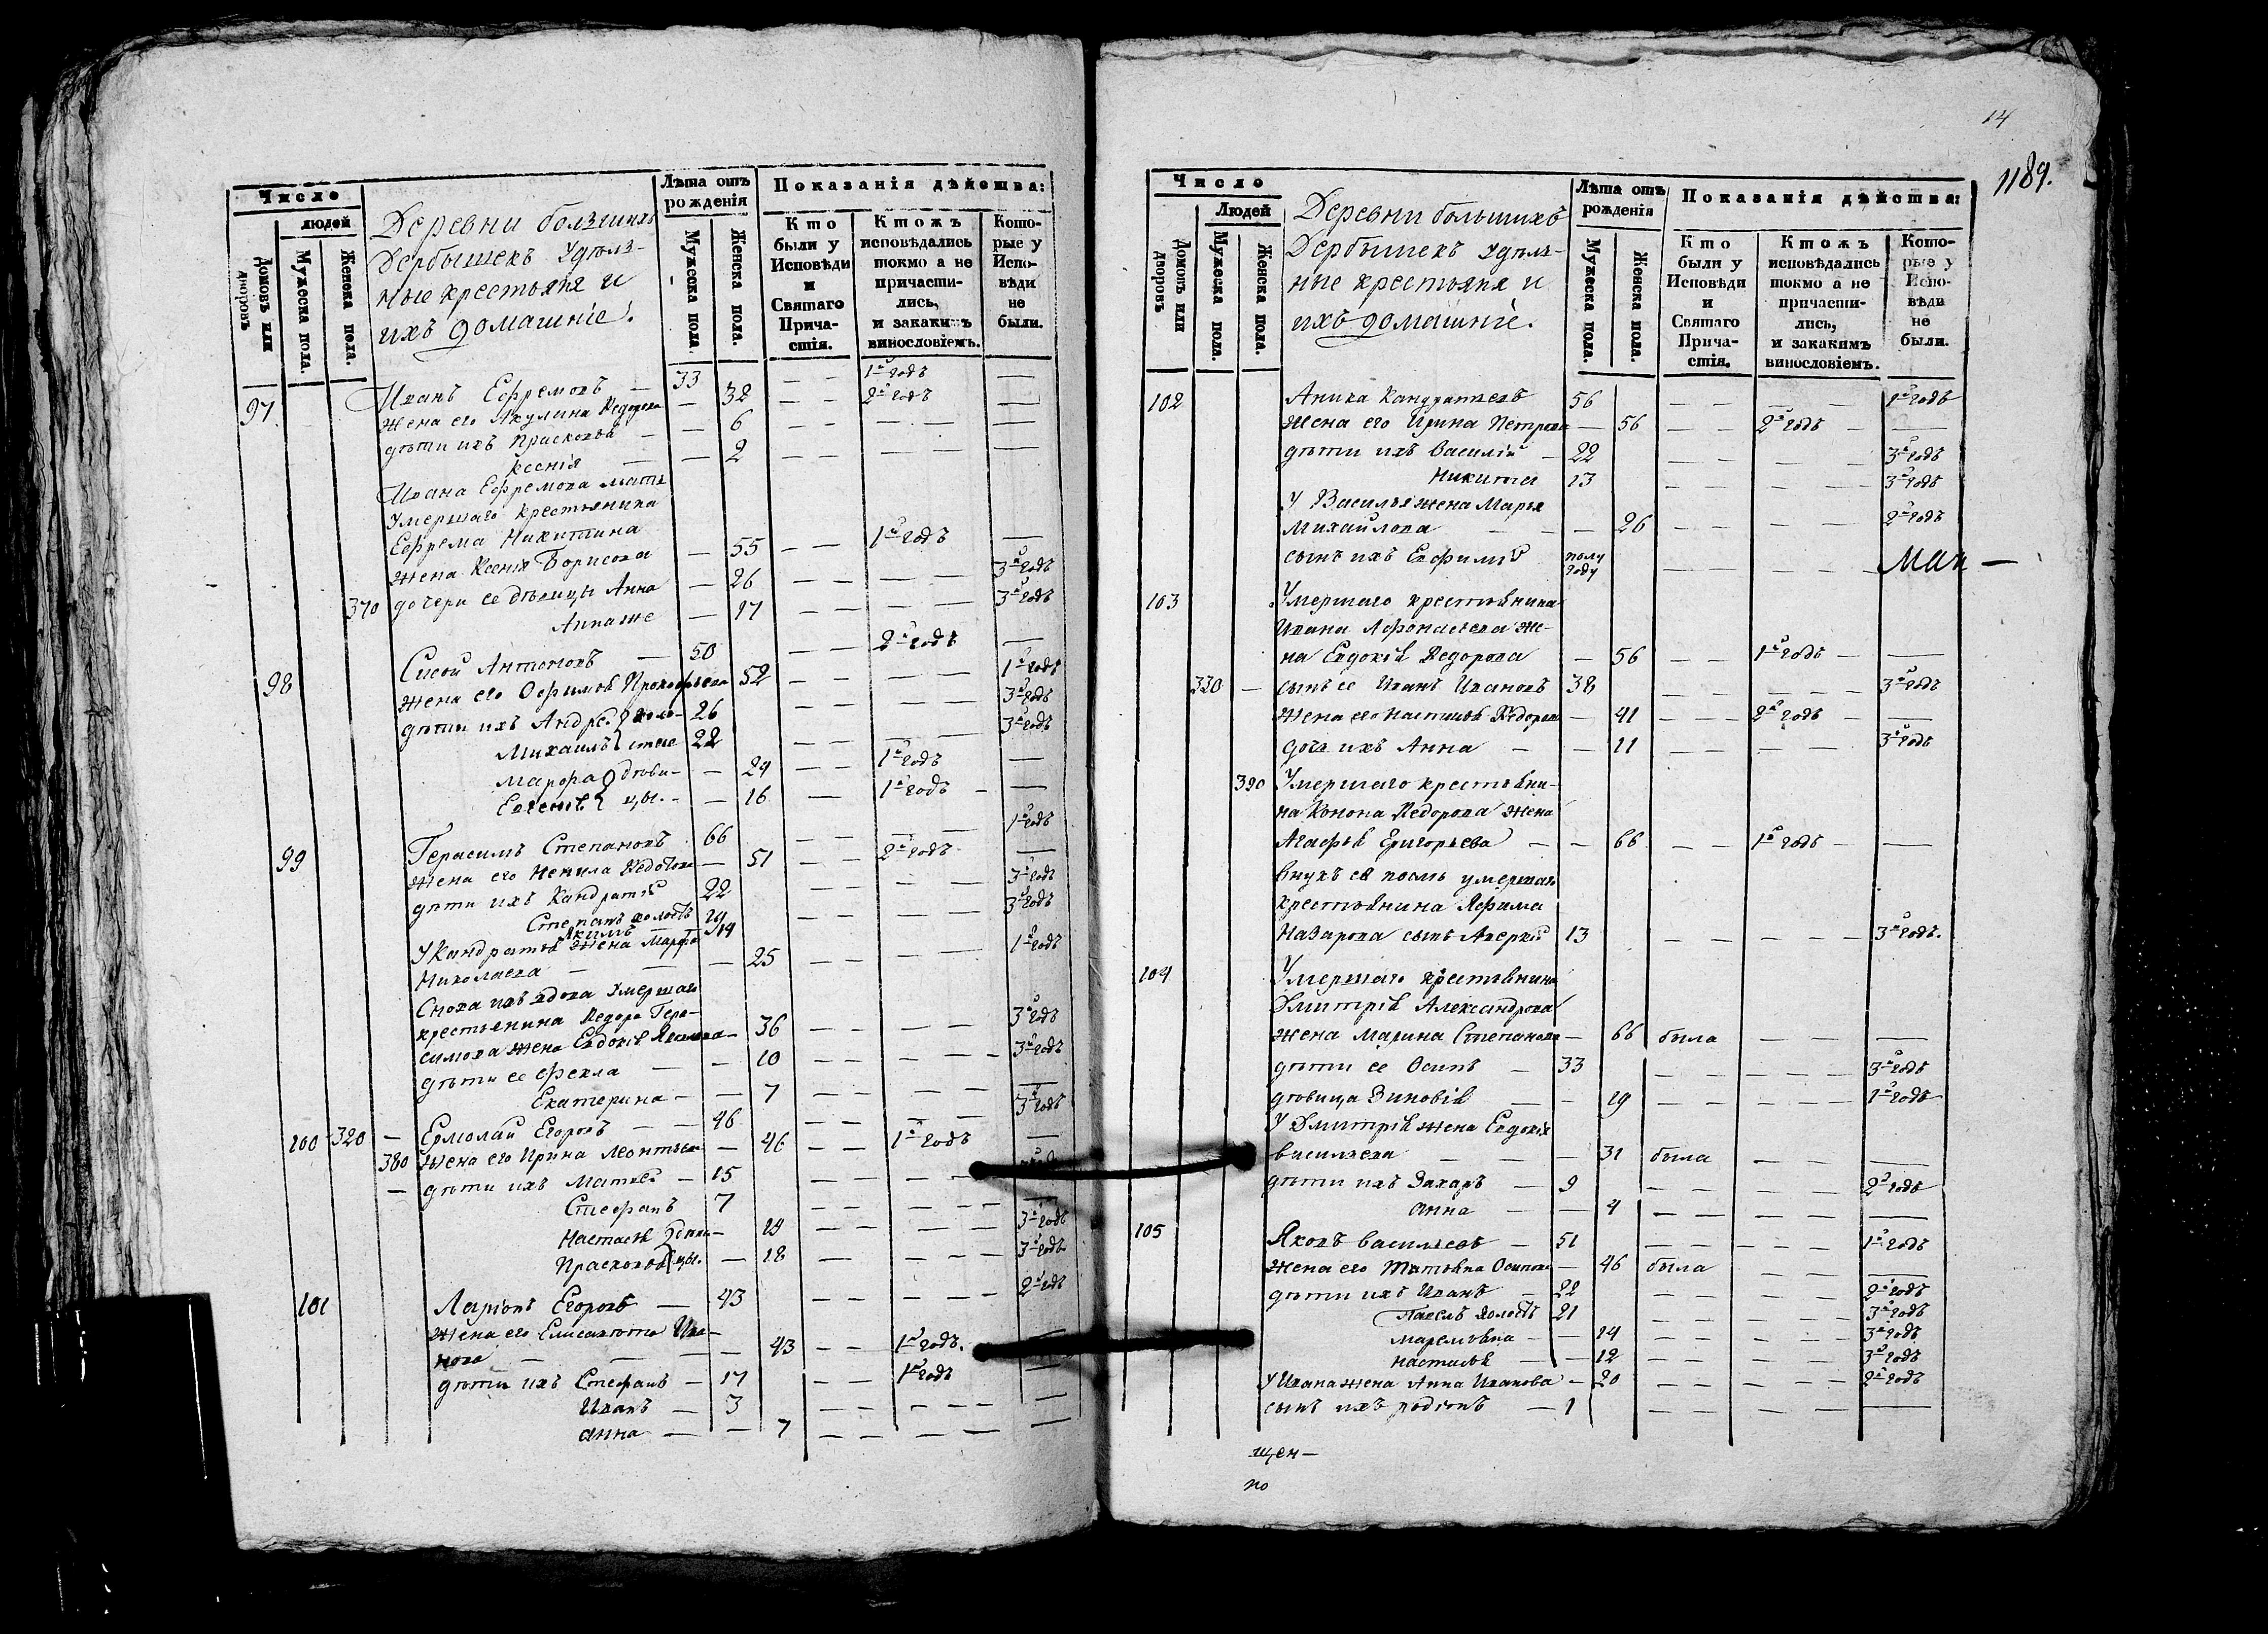 Число
людей
Домовъ или дворовъ
Мужеска пола.
Женска пола.
Деревни большихъ
Дербышекъ удѣль-
ные крестьяне и
ихъ домашніе.
Лѣта отъ рожденія
Мужеска пола.
Женска пола.
Показанія дѣйства:
Кто были у Исповѣди и Святаго Прича-стія.
Ктожъ исповѣдались токмо а не причасти-лись, и закакимъ винословіемъ.
Кото-рые у Испо-вѣди не были.
97 Иванъ Ефремовъ — 33 — — 1й годъ —
жена его Акулина Ѳедорова — 32 — — 2й годъ —
дѣти ихъ Прасковья — — 6 — — — — —
Ксенія — — 2 — — — — —
Ивана Ефремова мать
Умершаго крестьянина
Ефрема Никитина
жена Ксенія Борисова — 55 — — 1й годъ —
370 дочери ее дѣвицы Анна — 26 — — — — 3й годъ
Анна же — 17 — — — — 3й годъ
98 Сисой Антоновъ — 50 — — 2й годъ —
жена его Офимья Прокофьева 52 — — — — 1й годъ
дѣти ихъ Андрей холо- 26 — — — — 3й годъ
Михаилъ стые 22 — — — — 3й годъ
Марфа дѣви- — 24 — — 1й годъ —
Евгенія цы. — 16 — 1й годъ — —
99 Герасимъ Степановъ 66 — — — — 1й годъ
жена его Ненила Ѳедотова — 51 — — 2й годъ —
дѣти ихъ Кандратій 22 — — — — 3й годъ
Степанъ холостъ 19 — — — — 3й годъ
Якимъ — 14
У Кандратья жена Марфа
Николаева — — — 25 — — — — 1й годъ
Сноха ихъ вдова Умершаго
крестьянина Ѳедора Гера-
симова жена Евдокія — 36 — — — — 3й годъ
дѣти ее Фекла — — 10 — — — — 3й годъ
Екатерина — — 7 — — — — —
100 320 — Ермолай Егоровъ — — 46 — — 3й годъ
380 жена его Ирина Леонтьева — 46 — — 1й годъ —
— дѣти ихъ Матвей — 15 — — — —
Стефанъ 7 — — — — —
Настасья дѣви- — 19 — — — — 3й годъ
Прасковья цы. — 18 — — — — 3й годъ
101 Ларіонъ Егоровъ — 43 — — — — 2й годъ
жена его Елисавета Ива-
нова — — — — 43 — — 1й годъ. —
дѣти ихъ Стефанъ — 17 — — 1й годъ —
Иванъ — 3 — — — — —
Анна — — 7 — — — — —
14
1189.
Число
Людей
Домовъ или дворовъ
Мужеска пола.
Женска пола.
Деревни большихъ
Дербышекъ удѣль-
ные крестьяне и
ихъ домашніе.
Лѣта отъ рожденія
Мужеска пола.
Женска пола.
Показанія дѣйства:
Кто были у Исповѣди и Святаго Прича-стія.
Ктожъ исповѣдались токмо а не причасти-лись, и закакимъ винословіемъ.
Кото-рые у Испо-вѣди не были.
102 Аника Кандратьевъ 56 — — — — 1й годъ
жена его Ирина Петрова — 56 — — 2й годъ — —
дѣти ихъ Василій — 22 — — — — 3й годъ
Никита 13 — — — — 3й годъ
У Василья жена Марья
Михайлова — — — 26 — — — — 2й годъ
сынъ ихъ Евфимій полу году — — — —
103 Умершаго крестьянина
Ивана Афонасьева же-
на Евдокія Ѳедорова — 56 — — 1й годъ — —
330 — сынъ ее Иванъ Ивановъ 38 — — — — 3й годъ
жена его Настасья Ѳедорова — 41 — — 2й годъ — —
дочь ихъ Анна — — 11 — — — — 3й годъ
390 Умершаго крестьяни-
на Конона Ѳедорова жена
Агафья Григорьева — — 66 — — 1й годъ — —
внукъ ея посль умершаго
крестьянина Афима
Назарова сынъ Аверкій 13 — — — — 3й годъ.
104 Умершаго крестьянина
Дмитрія Александрова
жена Марина Степанова — 66 была — — —
дѣти ее Осипъ — 33 — — — — 3й годъ
дѣвица Зиновія — — 19 — — — — 1й годъ
У Дмитрія жена Евдокія
Васильева — — — 31 была — — —
дѣти ихъ Захаръ — 9 — — — — 2й годъ
Анна — — 4 — — — — —
105 Яковъ Васильевъ — 51 — — — — 1й годъ
жена его Татьяна Осипова — 46 была — — —
дѣти ихъ Иванъ — 22 — — — — 2й годъ
Павелъ холостъ 21 — — — — 3й годъ
Маремьяна — — 14 — — — — 3й годъ
Настасья — — 12 — — — — 3й годъ
У Ивана жена Анна Иванова — 20 — — — — 2й годъ
сынъ ихъ Родіонъ — 1 — — — — —
щен—
но